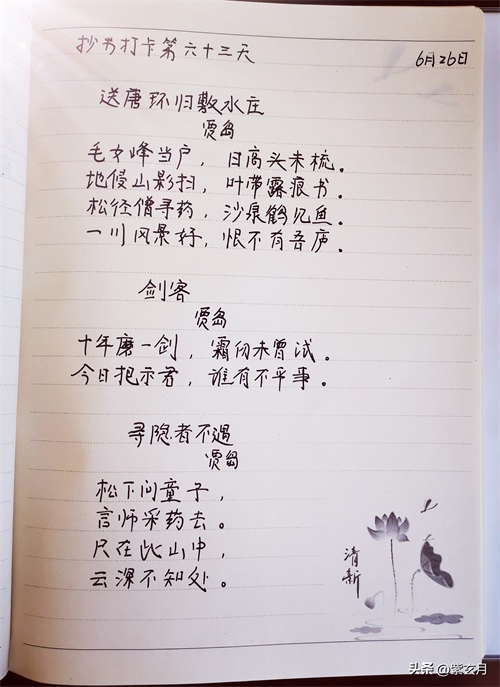 抄书打卡第六十三天
6月26日
送唐环归敷水庄
贾岛
毛女峰当户，日高头未梳。
地侵山影扫，叶带露痕书。
松径僧寻药，沙泉鹤见鱼。
一川风景好，恨不有吾庐。
剑客
贾岛
十年磨一剑，霜仞未曾试。
今日把示君，谁有不平事。
寻隐者不遇
贾岛
松下问童子，
言师采药去。
只在此山中，
云深不知处。
清新
头条@紫玄月